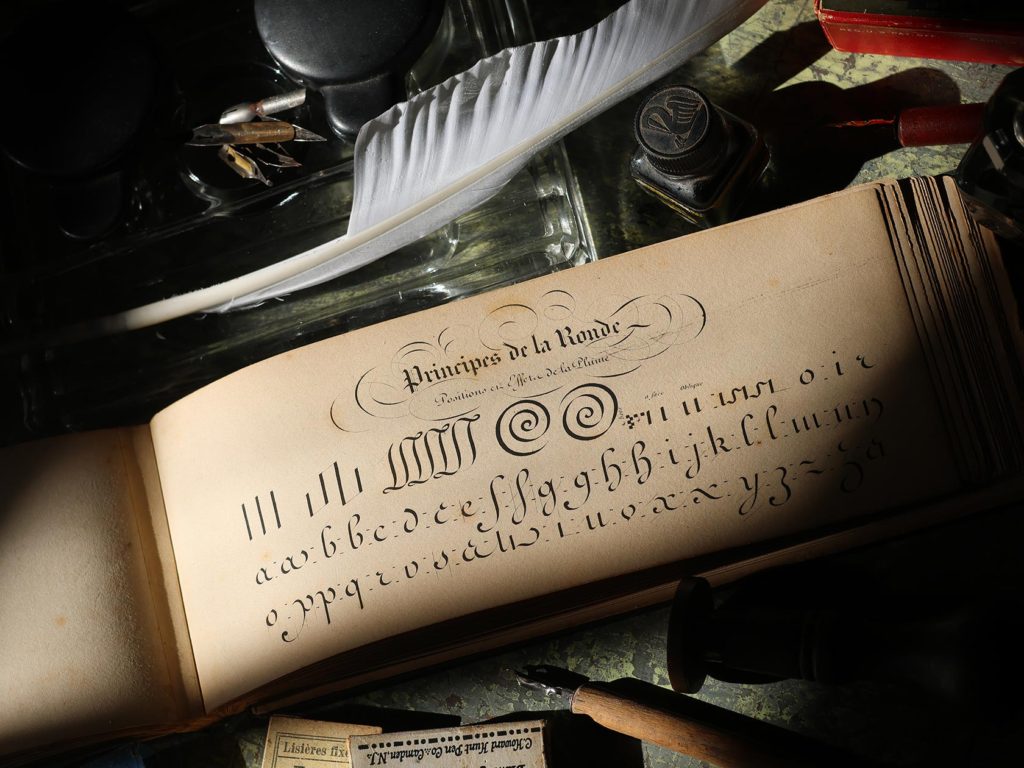 Principes de la Ronde
Positions et Effets de la Plume
a face Oblique
o. i r
a.a.b.b.c.d.e.e.f.f.g.g.g.h.h.i.j.k.l.l.m.n.n
o.p.p.q.r.v.s.a.t.t.u.v.x.x.y.z.z.z.
Lisières fixe
C. Howard Hunt Pen Co., Camden, N.J.